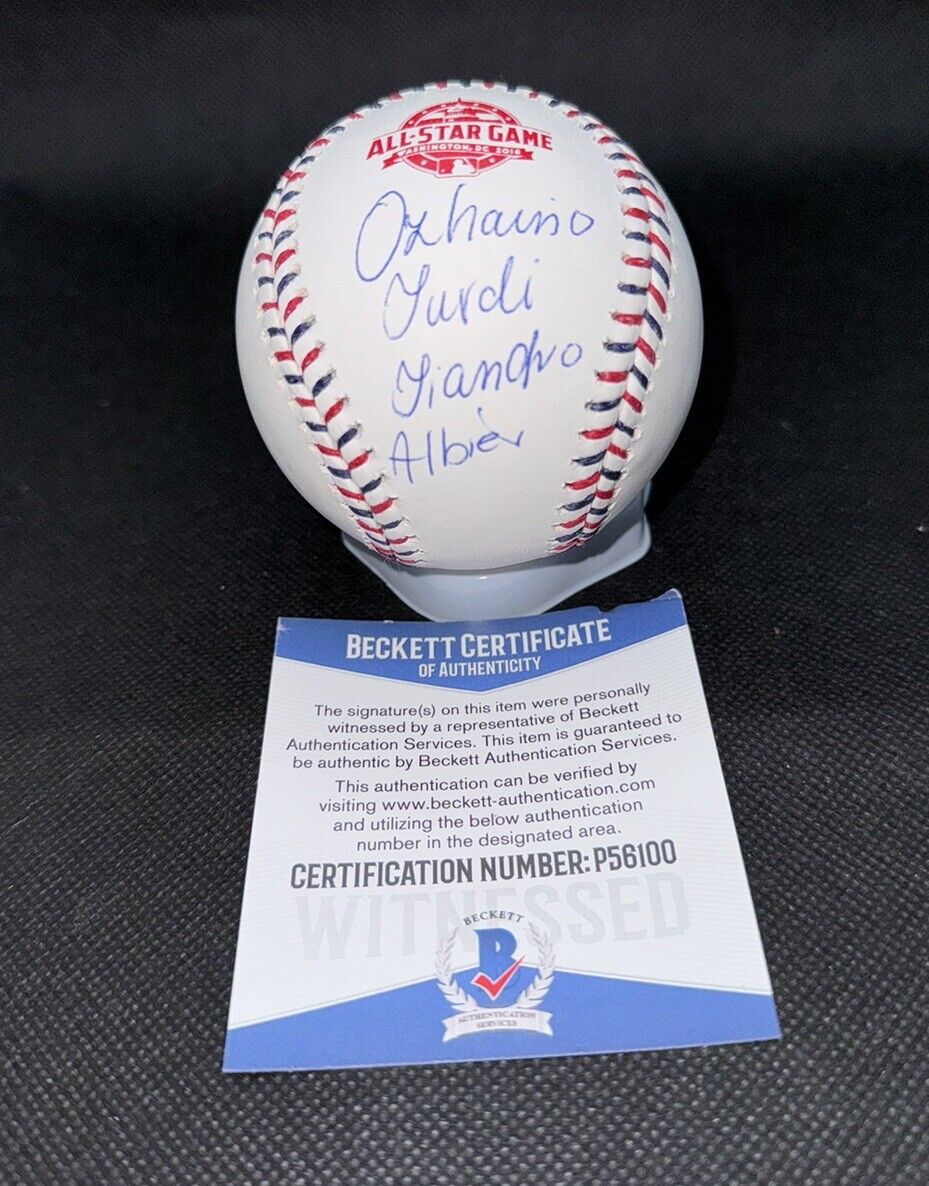 ALL-STAR GAME
WASHINGTON, DC 2018
Ozhaino
Jurdi
Jiandro
Albier
BECKETT CERTIFICATE
OF AUTHENTICITY
The signature(s) on this item were personally
witnessed by a representative of Beckett
Authentication Services. This item is guaranteed to
be authentic by Beckett Authentication Services.
This authentication can be verified by
visiting www.beckett-authentication.com
and utilizing the below authentication
number in the designated area.
CERTIFICATION NUMBER: P56100
WITNESSED
BECKETT
B
AUTHENTICATION
SERVICES